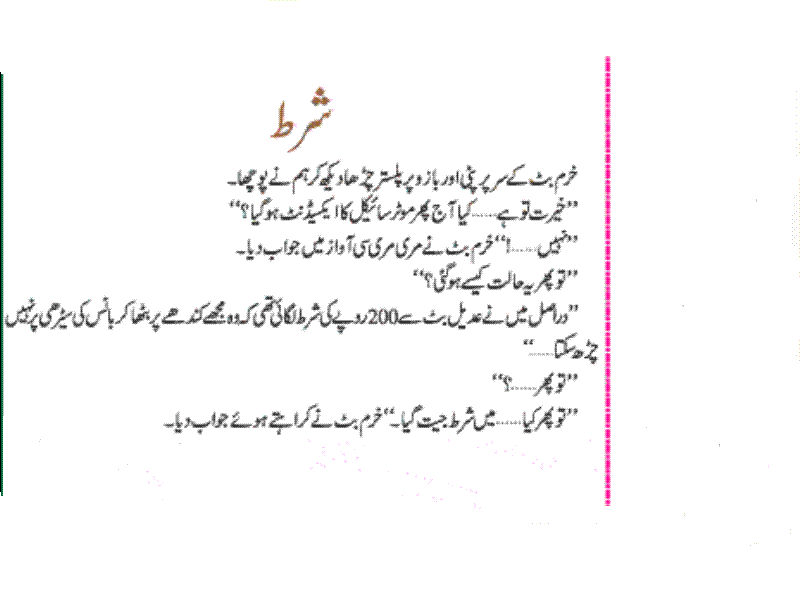 شرط
خرم بٹ کے سر پر پٹی اور بازو پر پلستر چڑھا دیکھ کر ہم نے پوچھا۔
”خیرت تو ہے......کیا آج پھر موٹر سائیکل کا ایکسیڈنٹ ہو گیا؟“
”نہیں......!“ خرم بٹ نے مری مری سی آواز میں جواب دیا۔
”تو پھر یہ حالت کیسے ہو گئی؟“
”دراصل میں نے عدیل بٹ سے 200 روپے کی شرط لگائی تھی کہ وہ مجھے کندھے پر بٹھا کر بانس کی سیڑھی پر نہیں
چڑھ سکتا......“
”تو پھر......؟“
”تو پھر کیا......میں شرط جیت گیا۔“ خرم بٹ نے کراہتے ہوئے جواب دیا۔